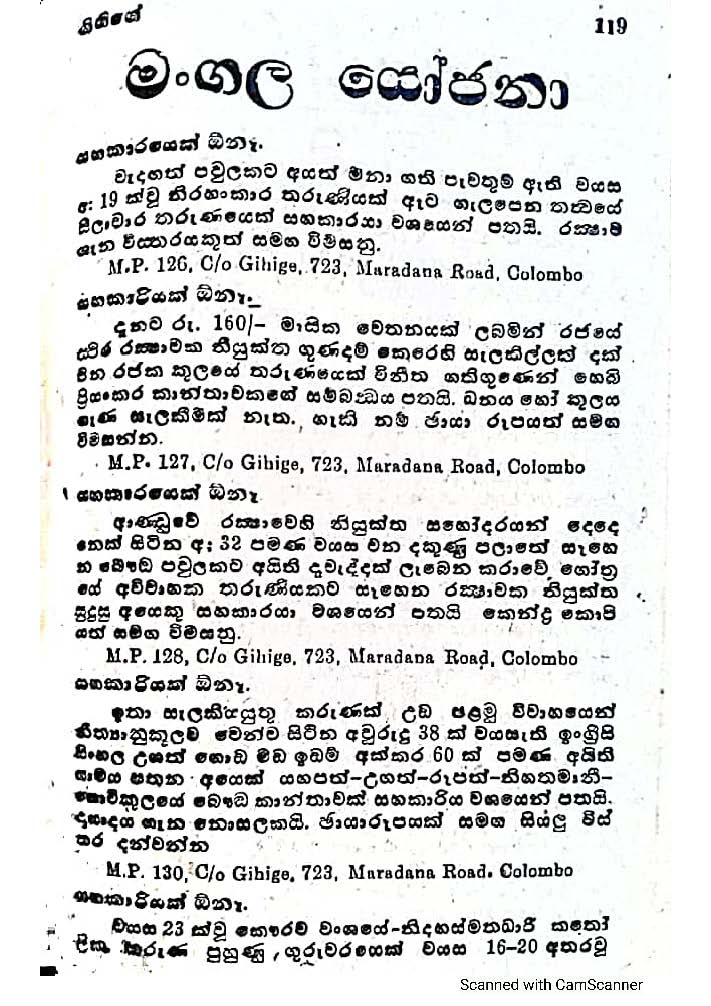 ගිහිගේ
119
මංගල යෝජනා
සහකාරයෙක් ඕනෑ.
වැදගත් පවුලකට අයත් මනා ගති පැවතුම් ඇති වයස
අ: 19 ක්වූ නිරහංකාර තරුණියක් ඇට ගැලපෙන තත්වයේ
සිලාචාර තරුණයෙක් සහකාරයා වශයෙන් පතයි. රක්‍ෂාව
ගැන විස්තරයකුත් සමග විමසනු.
M.P. 126, C/o Gihige, 723, Maradana Road, Colombo
සහකාරියක් ඕනෑ.
දැනට රු. 160/- මාසික වෙතනයක් ලබමින් රජයේ
ස්ථිර රක්‍ෂාවක නියුක්ත ගුණදම් කෙරෙහි සැලකිල්ලක් දක්
වන රජක කුලයේ තරුණයෙක් විනීත ගතිගුණෙන් හෙබි
ප්‍රියංකර කාන්තාවකගේ සම්බන්‍ධය පතයි. ධනය හෝ කුලය
ගැණ සැලකීමක් නැත. හැකි නම් ඡායා රූපයත් සමඟ
විමසන්න.
M.P. 127, C/o Gihige, 723, Maradana Road, Colombo
සහකාරයෙක් ඕනෑ
ආණ්ඩුවේ රක්‍ෂාවෙහි නියුක්ත සහෝදරයන් දෙදෙ
නෙක් සිටින අ; 32 පමණ වයස වන දකුණු පලාතේ සෑහෙ
න බෞද්‍ධ පවුලකට අයිති දෑවැද්දක් ලැබෙන කරාවේ ගෝත්‍ර
යේ අවිවාහක තරුණියකට සෑහෙන රක්‍ෂාවක නියුක්ත
සුදුසු අයෙකු සහකාරයා වශයෙන් පතයි කෙන්ද්‍ර කොපි
යත් සමග විමසනු.
M.P. 128, C/o Gihige, 723, Maradana Road, Colombo
සහකාරියක් ඕනෑ.
ඉතා සැලකියයුතු කරුණක් උඩ පළමු විවාහයෙන්
නීත්‍යානුකූලව වෙන්ව සිටින අවුරුදු 38 ක් වයසැති ඉංග්‍රිසි
සිංහල උගත් ගොඩ මඩ ඉඩම් අක්කර 60 ක් පමණ අයිති
ගාමය හතන අයෙක් යහපත්-උගත්-රූපත්-නිහතමානී-
ගොවිකුලයේ බෞද්‍ධ කාන්තාවක් සහකාරිය වශයෙන් පතයි.
දෑවැද්ද ගැන නොසලකයි. ඡායාරූපයක් සමඟ සියලු විස්
තර දන්වන්න
M.P. 130, C/o Gihige, 723, Maradana Road. Colombo
සහකාරියක් ඕනෑ.
වයස 23 ක්වූ කෞරව වංශයේ-නිදහස්මතධාරී කතෝ
ලික තරුණ පුහුණු ගුරුවරයෙක් වයස 16-20 අතරවූ
Scanned with CamScanner